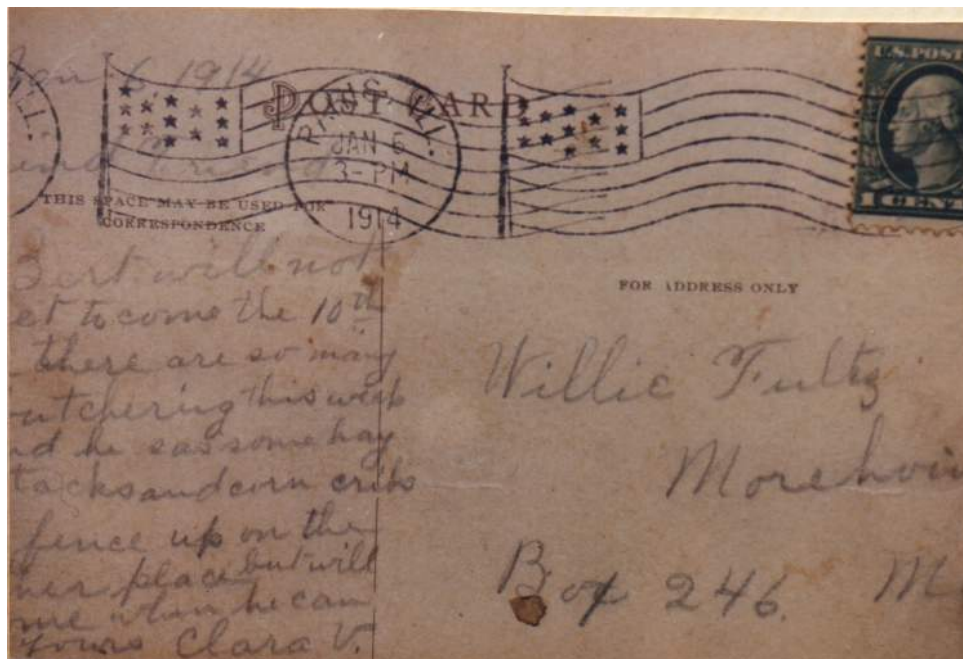 Jan 6, 1914
POST CARD
PARIS, ILL.
JAN 6
3-PM
1914
U.S. POST
THIS SPACE MAY BE USED FOR
CORRESPONDENCE
FOR ADDRESS ONLY
Bert will not
et to come the 10th
there are so many
utchering this week
nd he has some hay
tacks and corn cribs
fence up on the
her place but will
me when he can
Yours Clara V.
Willie Fultz
Morehou
Box 246. M